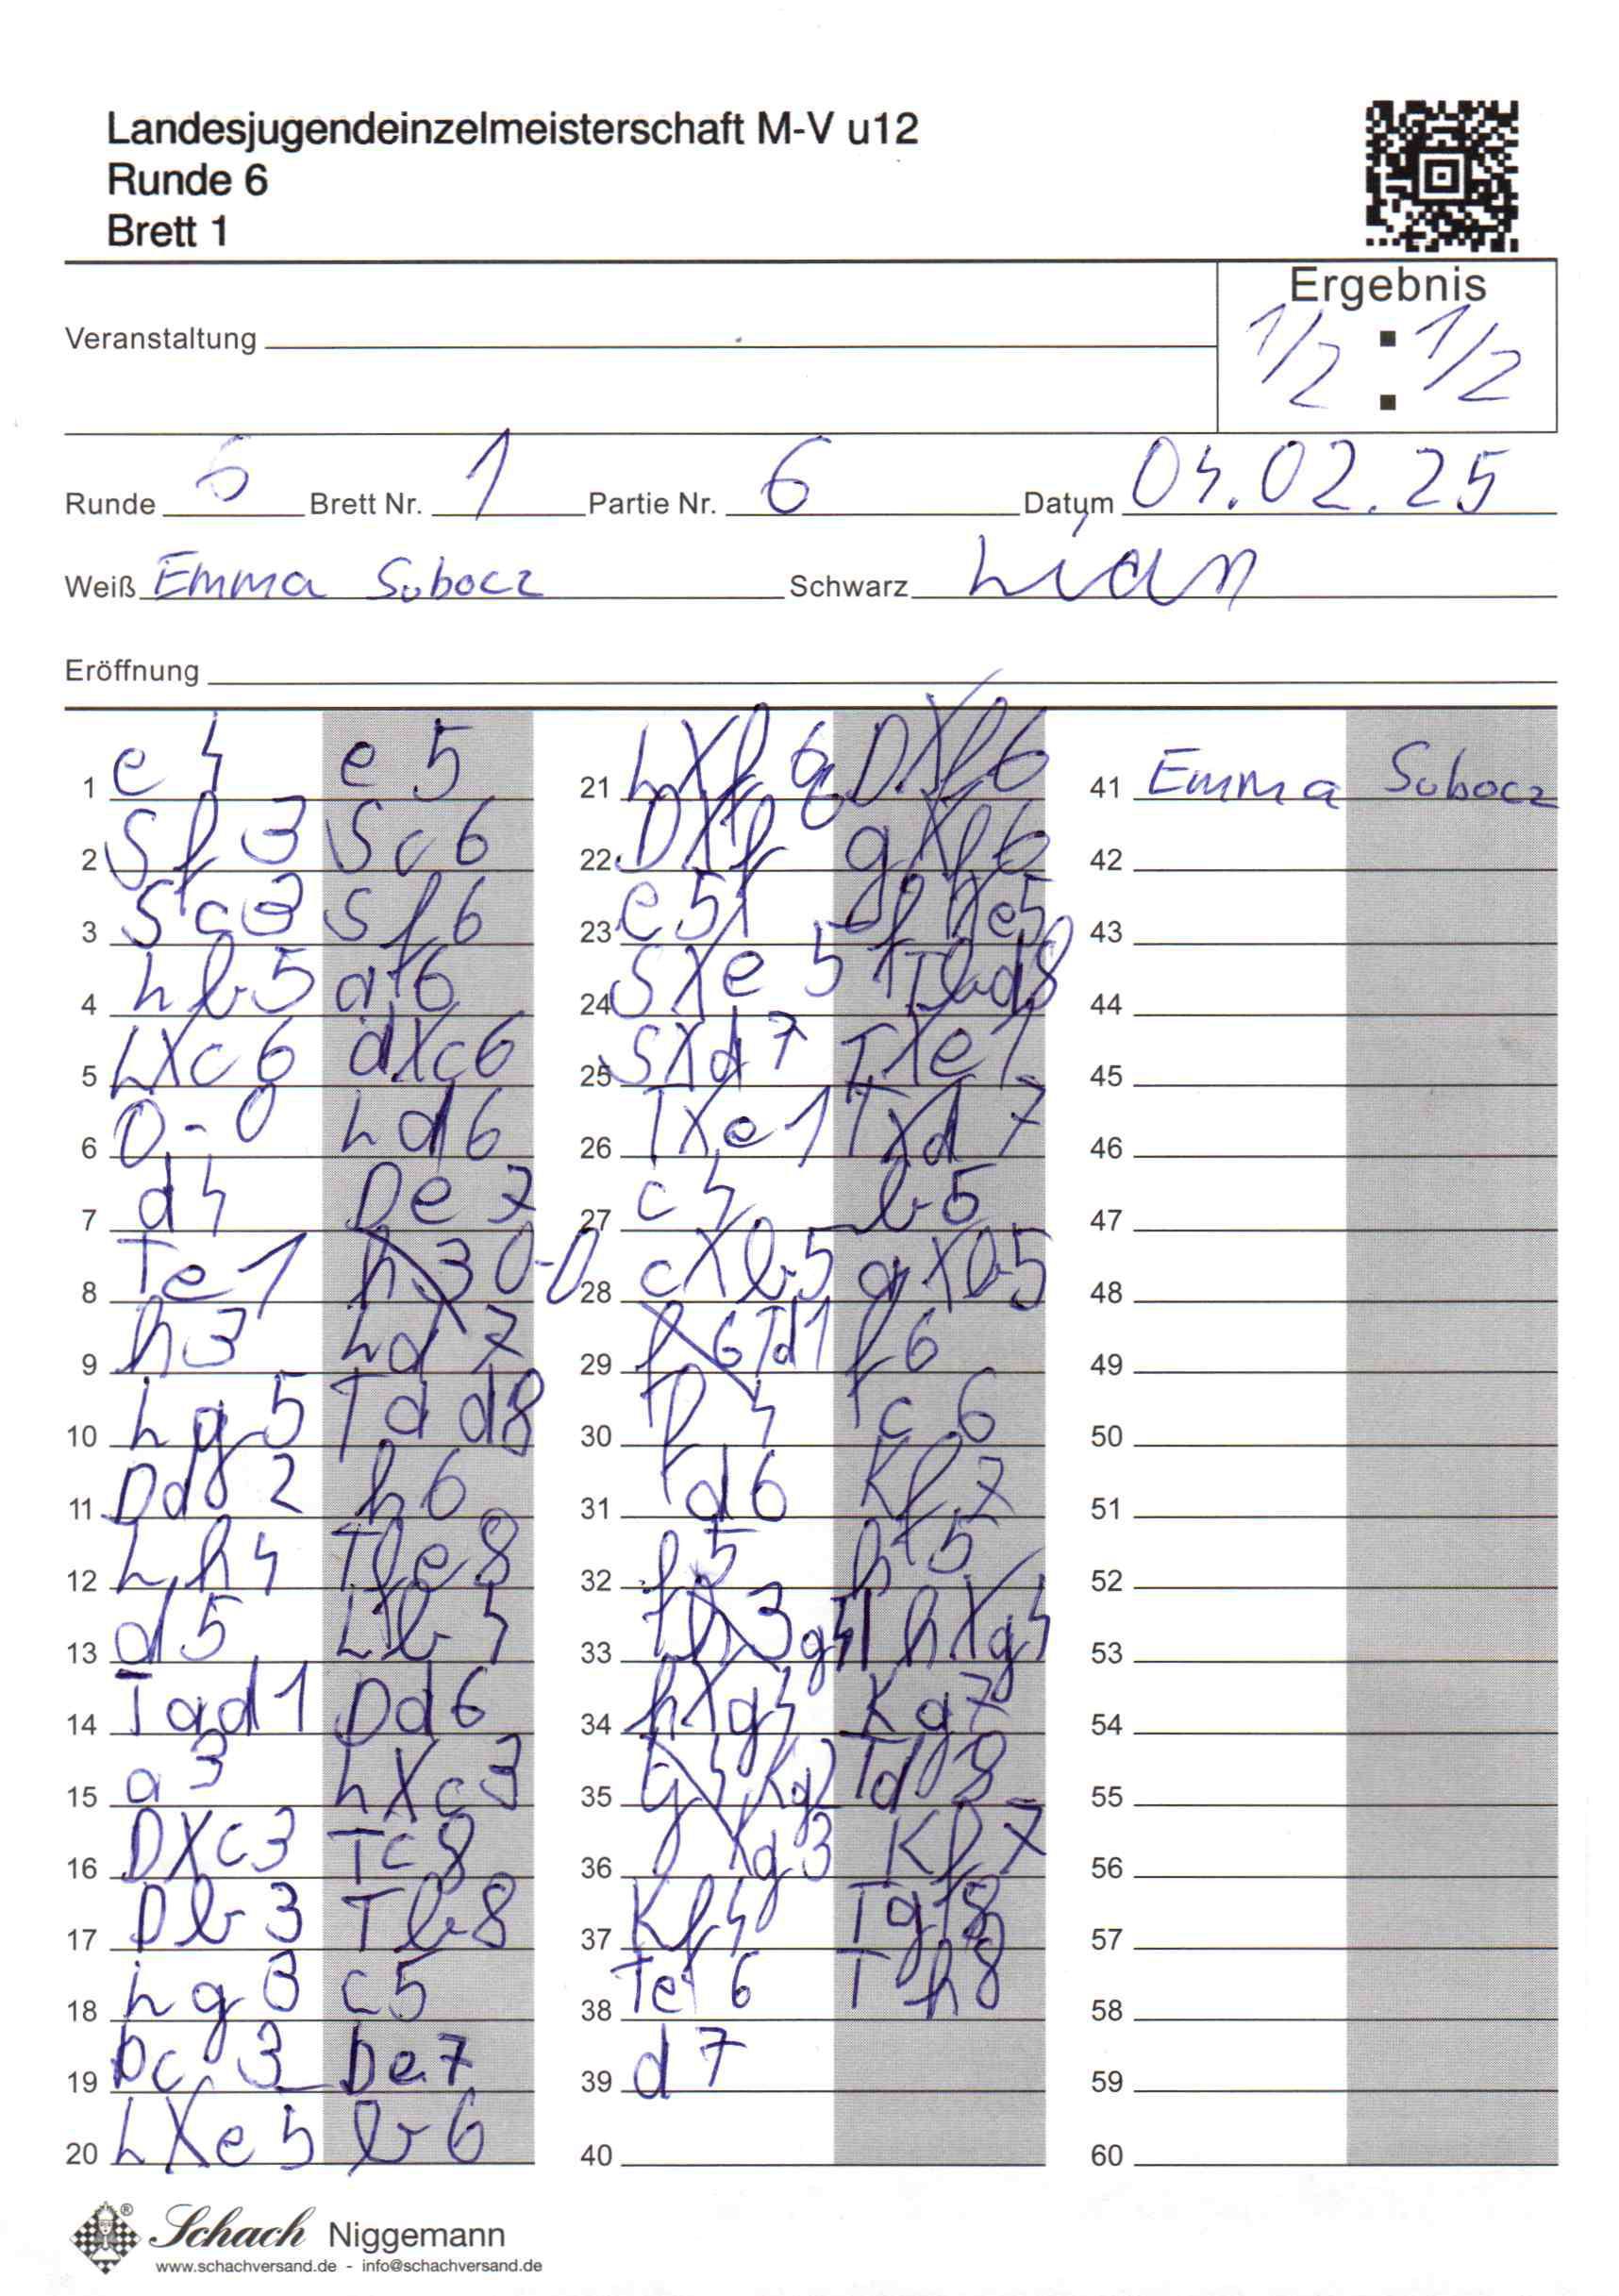 Landesjugendeinzelmeisterschaft M-V u12
Runde 6
Brett 1
Ergebnis
1/2 : 1/2
Veranstaltung
Runde 6 Brett Nr. 1 Partie Nr. 6 Datum 04.02.25
Weiß Emma Subocz Schwarz Lian
Eröffnung
1 e4 e5
2 Sf3 Sc6
3 Sc3 Sf6
4 Lb5 a6
5 LXc6 dXc6
6 0-0 Ld6
7 d4 De7
8 Te1 0-0
9 h3 Ld7
10 Lg5 Tad8
11 Dd2 h6
12 Lh4 Tfe8
13 d5 Lb4
14 Tad1 Dd6
15 a3 LXc3
16 DXc3 Tc8
17 Db3 Tb8
18 Lg3 c5
19 Dc3 De7
20 LXe5 b6
21 LXf6 DXf6
22 DXf6 gXf6
23 e5 fXe5
24 SXe5 Tbd8
25 SXd7 TXe1
26 TXe1 TXd7
27 c4 b5
28 cXb5 aXb5
29 Td1 f6
30 f4 c6
31 d6 Kf7
32 f5 h5
33 g4 hXg4
34 hXg4 Kg7
35 Kg2 Td8
36 Kg3 Kf7
37 Kf4 Tg8
38 Te6 Th8
39 d7
40
41 Emma Subocz
42
43
44
45
46
47
48
49
50
51
52
53
54
55
56
57
58
59
60
Schach Niggemann
www.schachversand.de - info@schachversand.de